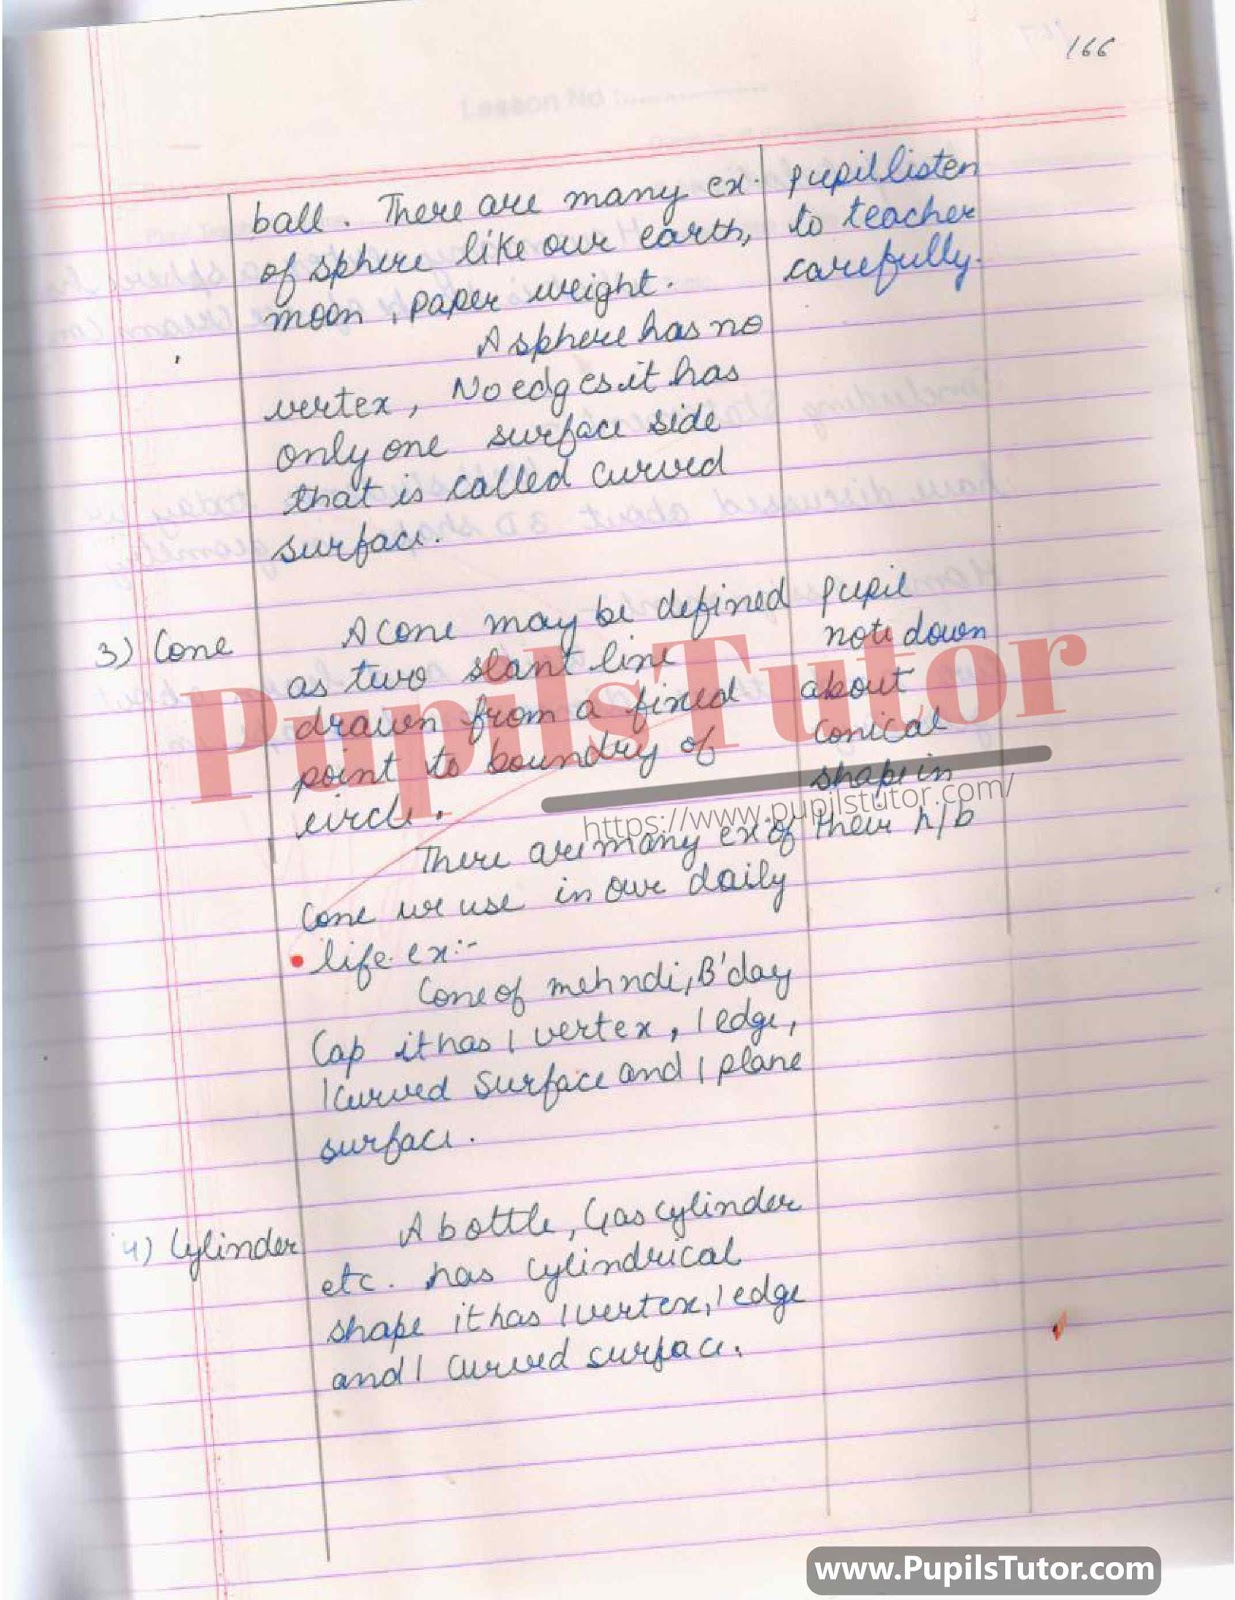 166
Lesson No :
ball. There are many ex. pupil listen
of sphere like our earth, to teacher
moon, paper weight. carefully.
A sphere has no
vertex, No edges it has
only one surface side
that is called curved
surface.
3) Cone A cone may be defined pupil
as two slant line note down
drawn from a fixed about
point to boundry of conical
circle. shape in
There are many ex. of their n/b
Cone we use in our daily
life. ex:-
Cone of mehndi, B'day
Cap it has 1 vertex, 1 edge,
1 Curved Surface and 1 plane
surface.
4) Cylinder A bottle, Gas cylinder
etc. has cylindrical
shape it has 1 vertex, 1 edge
and 1 curved surface.
PupilsTutor
https://www.pupilstutor.com/
www.PupilsTutor.com